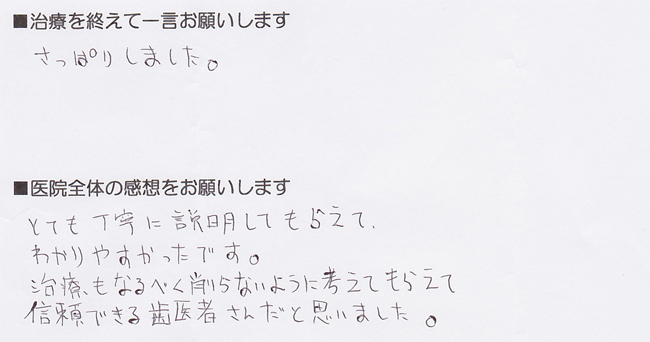 ■治療を終えて一言お願いします
さっぱりしました。
■医院全体の感想をお願いします
とても丁寧に説明してもらえて、
わかりやすかったです。
治療もなるべく削らないように考えてもらえて
信頼できる歯医者さんだと思いました。